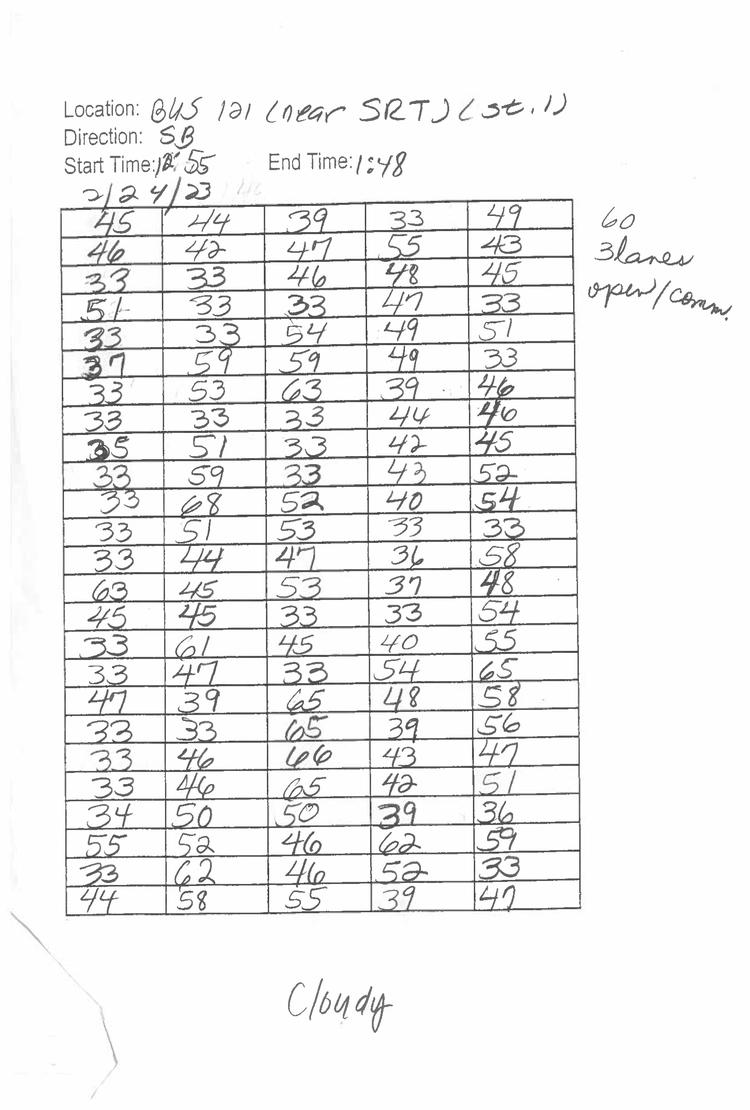 Location: BUS 121 (near SRT) (st. 1)
Direction: SB
Start Time: 12:55 End Time: 1:48
2/24/23
45 44 39 33 49
46 42 47 55 43
33 33 46 48 45
51 33 33 47 33
33 33 54 49 51
37 59 59 49 33
33 53 63 39 46
33 33 33 44 46
35 51 33 42 45
33 59 33 43 52
33 68 52 40 54
33 51 53 33 33
33 44 47 36 58
63 45 53 37 48
45 45 33 33 54
33 61 45 40 55
33 47 33 54 65
47 39 65 48 58
33 33 65 39 56
33 46 66 43 47
33 46 65 42 51
34 50 50 39 36
55 52 46 62 59
33 62 46 52 33
44 58 55 39 47
60
3 lanes
open/comm.
Cloudy